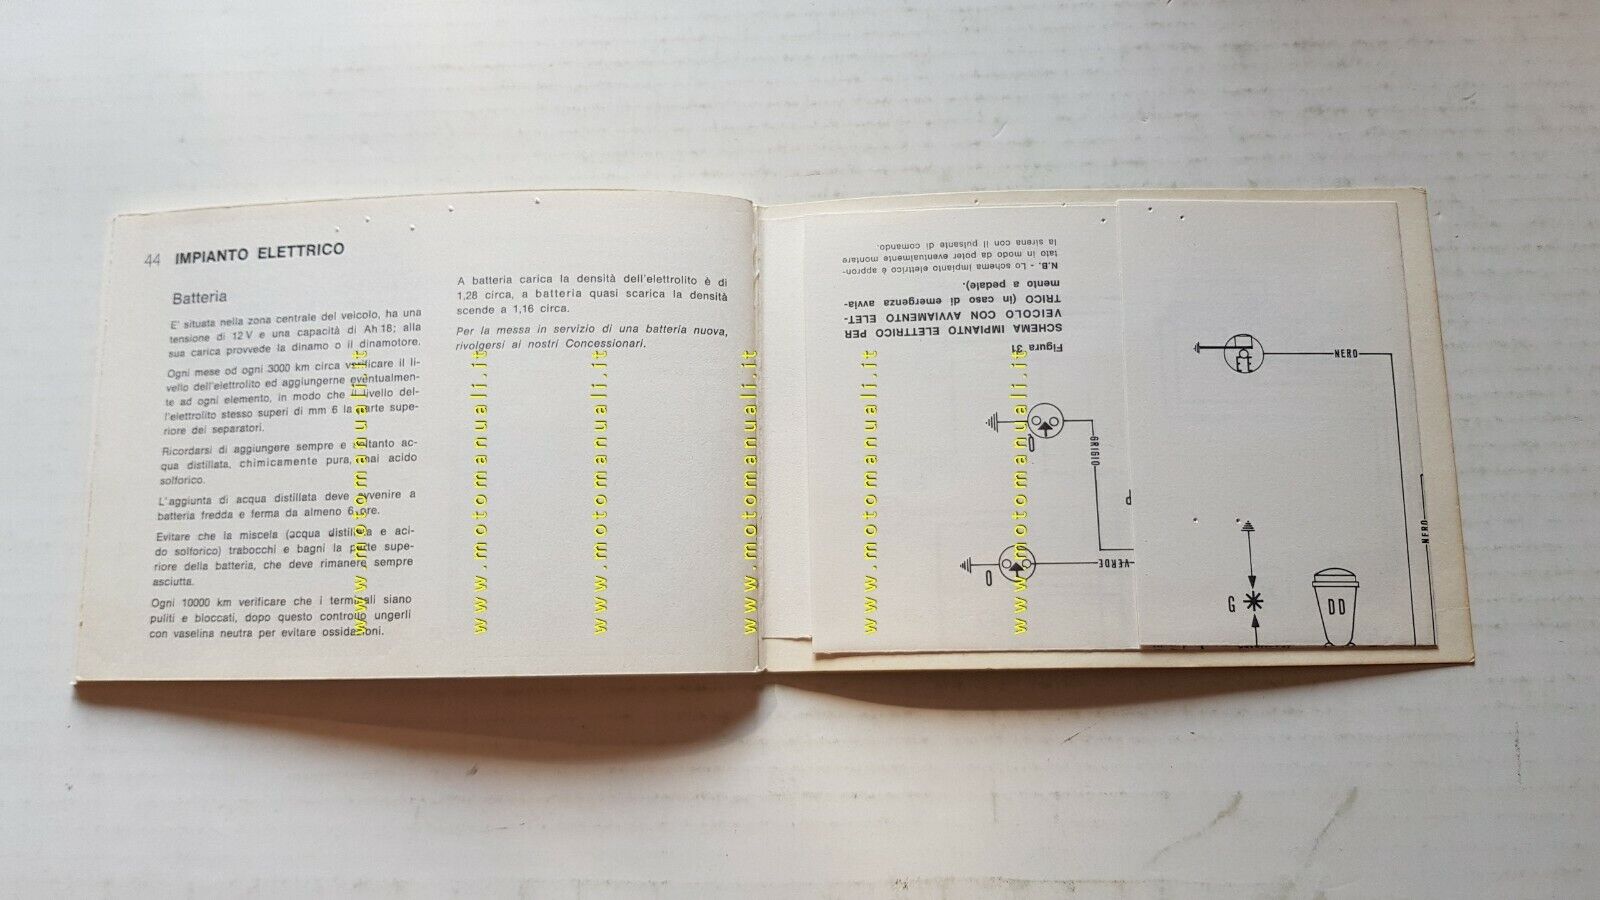 44 IMPIANTO ELETTRICO
Batteria
E' situata nella zona centrale del veicolo, ha una
tensione di 12 V e una capacità di Ah 18; alla
sua carica provvede la dinamo o il dinamotore.
Ogni mese od ogni 3000 km circa verificare il li-
vello dell'elettrolito ed aggiungerne eventualmen-
te ad ogni elemento, in modo che il livello del-
l'elettrolito stesso superi di mm 6 la parte supe-
riore dei separatori.
Ricordarsi di aggiungere sempre e soltanto ac-
qua distillata, chimicamente pura, mai acido
solforico.
L'aggiunta di acqua distillata deve avvenire a
batteria fredda e ferma da almeno 6 ore.
Evitare che la miscela (acqua distillata e aci-
do solforico) trabocchi e bagni la parte supe-
riore della batteria, che deve rimanere sempre
asciutta.
Ogni 10000 km verificare che i terminali siano
puliti e bloccati, dopo questo controllo ungerli
con vaselina neutra per evitare ossidazioni.
A batteria carica la densità dell'elettrolito è di
1,28 circa, a batteria quasi scarica la densità
scende a 1,16 circa.
Per la messa in servizio di una batteria nuova,
rivolgersi ai nostri Concessionari.
www.motomanuali.it
www.motomanuali.it
www.motomanuali.it
www.motomanuali.it
www.motomanuali.it
www.motomanuali.it
Figura 31
SCHEMA IMPIANTO ELETTRICO PER
VEICOLO CON AVVIAMENTO ELET-
TRICO (in caso di emergenza avvia-
mento a pedale).
N.B. - Lo schema impianto elettrico è appron-
tato in modo da poter eventualmente montare
la sirena con il pulsante di comando.
Q
GRIGIO
P
O
VERDE
NERO
NERO
G
DD